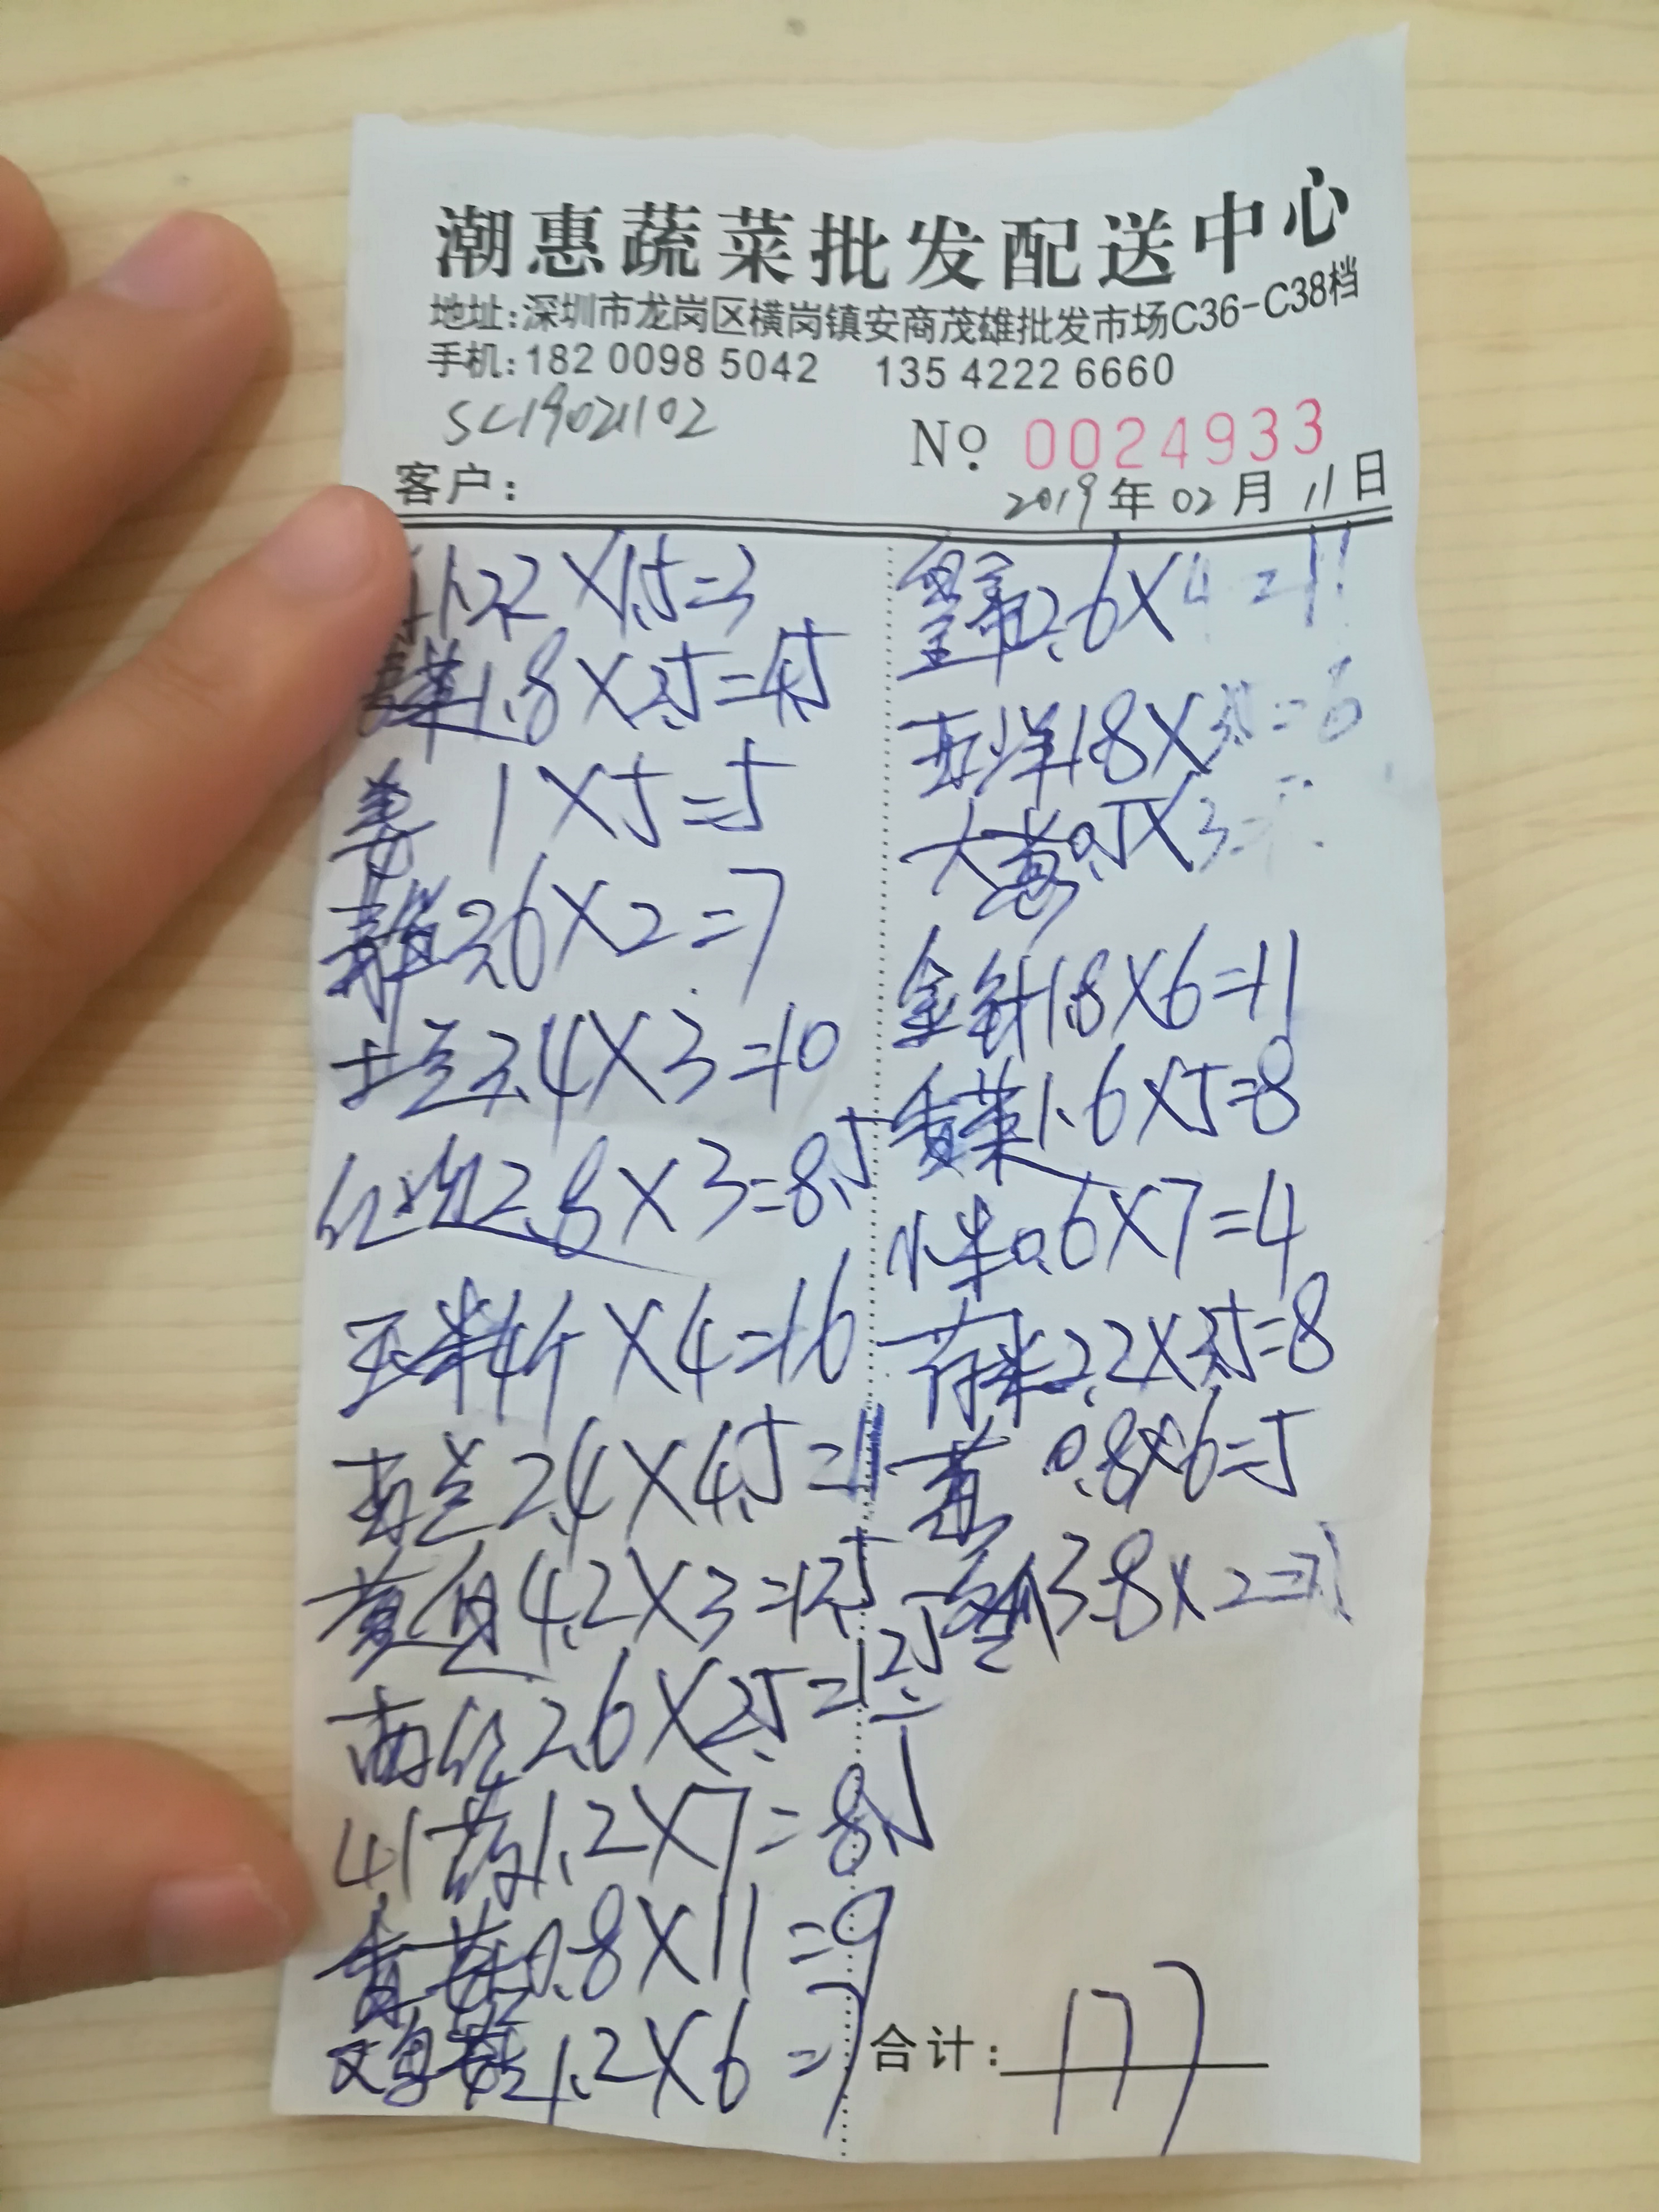 潮惠蔬菜批发配送中心
地址:深圳市龙岗区横岗镇安商茂雄批发市场C36-C38档
手机:182 0098 5042 135 4222 6660
SC19021102
No. 0024933
客户:
2019年02月11日
2.2×1.5=3
1.8×2.5=4.5
姜 1×5=5
3.6×2=7
土豆3.4×3=10
2.8×3=8.5
玉米4斤×4=16
西兰2.4×4.5=11
4.2×3=12.5
西红2.6×2.5=
1.2×7=8.5
0.8×11=9
1.2×6=7
2.6×4=11
西洋1.8×3.5=6
大葱0.5×3=
金针1.8×6=11
香菜1.6×5=8
小米0.6×7=4
2.2×3.5=8
0.8×6=5
3.8×2=
合计:177